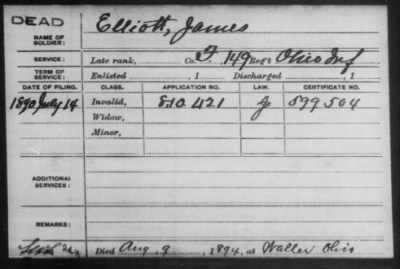 DEAD
NAME OF SOLDIER: Elliott, James
SERVICE: Late rank, Co. F, 149 Reg't Ohio Inf
TERM OF SERVICE: Enlisted , 1 Discharged , 1
DATE OF FILING. CLASS. APPLICATION NO. LAW. CERTIFICATE NO.
1890 July 14 Invalid, 810 421 J 899 504
Widow,
Minor,
ADDITIONAL SERVICES:
REMARKS:
Died Aug 9, 1894, at Waller Ohio